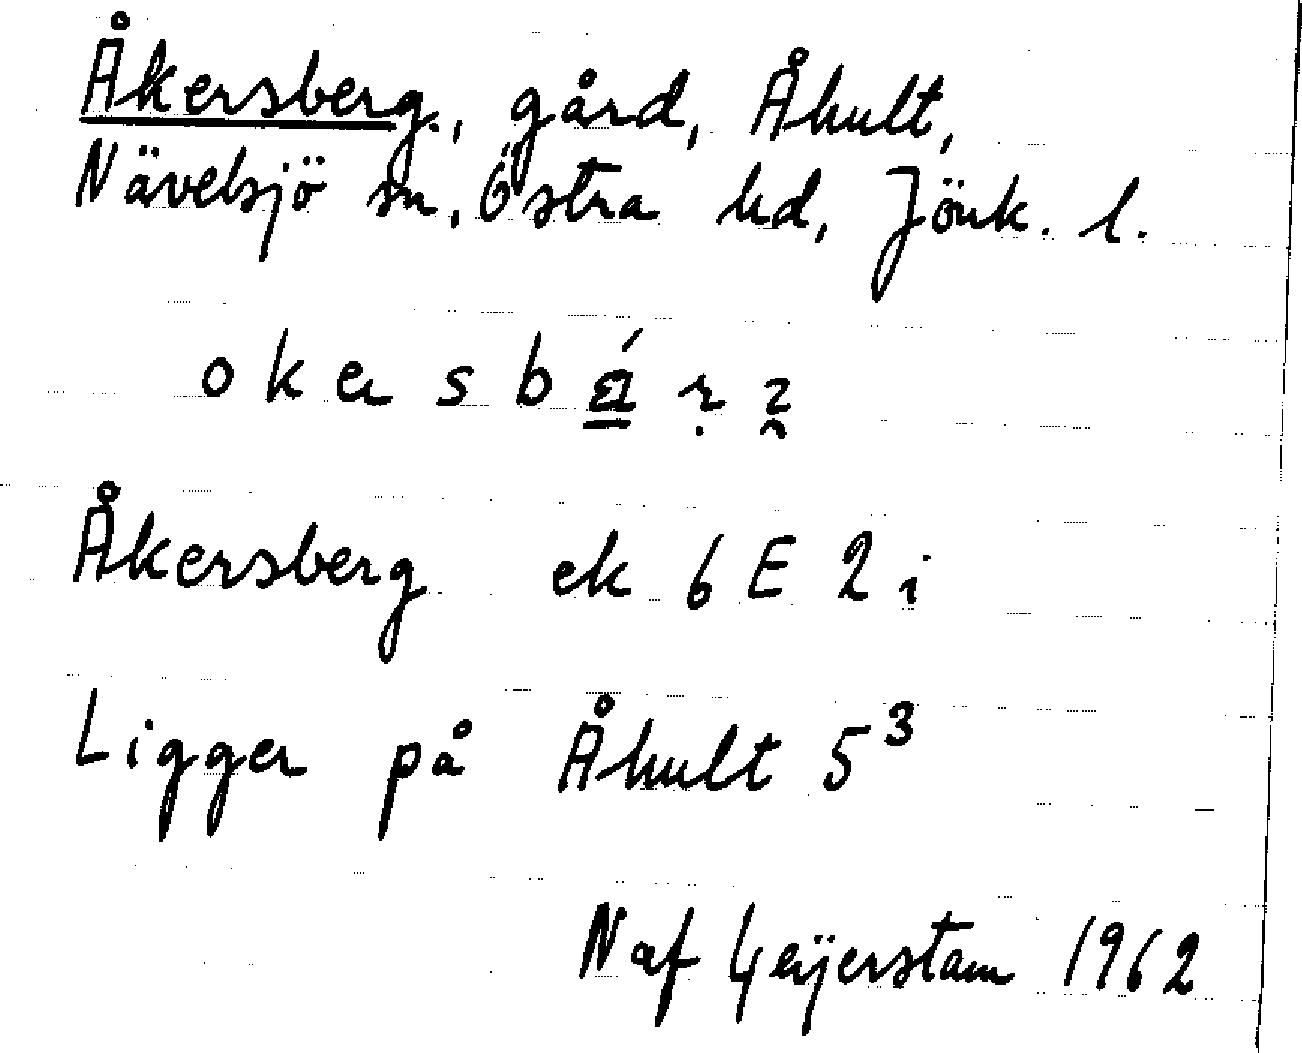 Åkersberg, gård, Åhult,
Nävelsjö sn, Östra hd, Jönk. l.
Åkersberg ek 6 E 2 i
Ligger på Åhult 5³
N af Geijerstam 1962